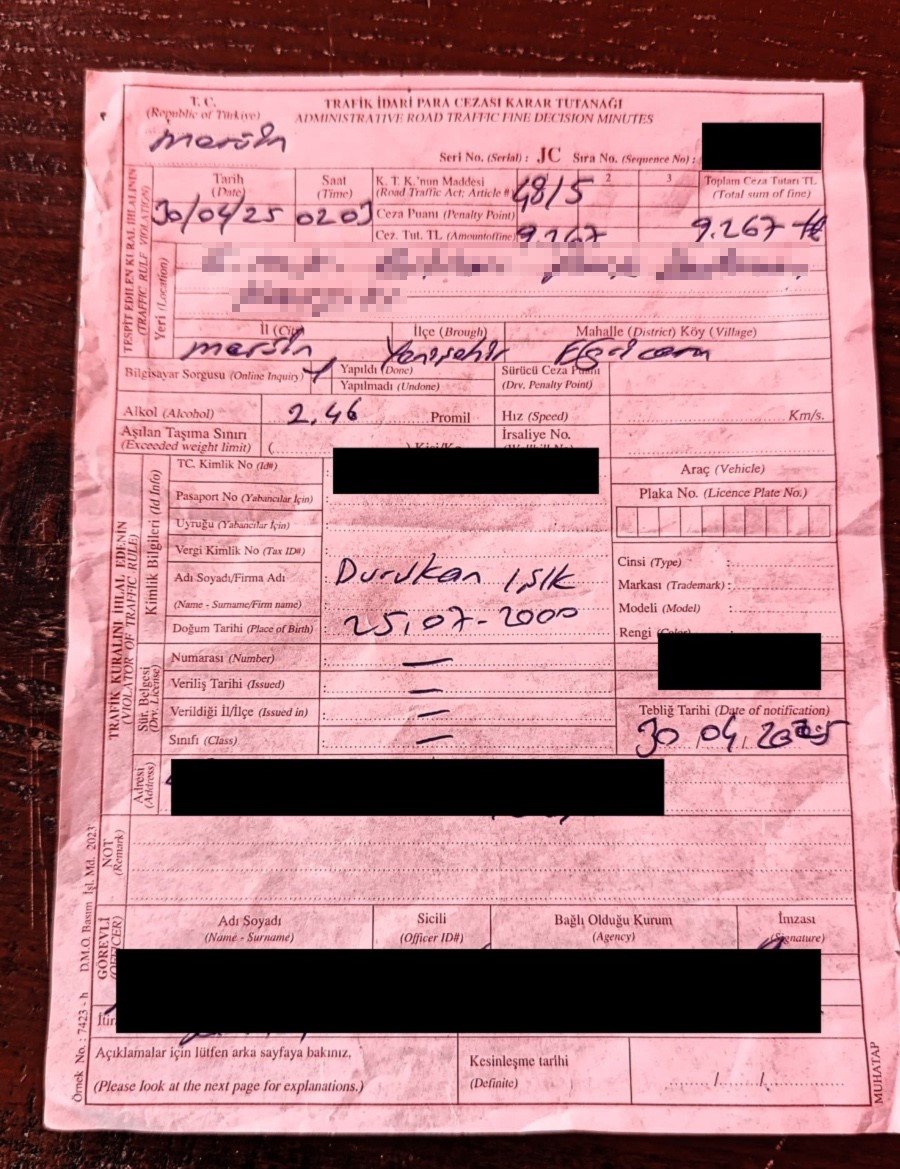 T. C.
(Republic of Türkiye)
mersin
TRAFİK İDARİ PARA CEZASI KARAR TUTANAĞI
ADMINISTRATIVE ROAD TRAFFIC FINE DECISION MINUTES
Seri No. (Serial) : JC Sıra No. (Sequence No) :
TESPİT EDİLEN KURAL İHLALİNİN
(TRAFFIC RULE VIOLATION)
Tarih
(Date)
30/04/25
Saat
(Time)
0203
K. T. K.'nun Maddesi
(Road Traffic Act; Article #)
48/5
2
3
Toplam Ceza Tutarı TL
(Total sum of fine)
Ceza Puanı (Penalty Point)
Cez. Tut. TL (Amountoffine)
9.267
9.267 TL
Yeri (Location)
İl (City)
mersin
İlçe (Brough)
Yenişehir
Mahalle (District) Köy (Village)
Bilgisayar Sorgusu (Online Inquiry)
Yapıldı (Done)
Yapılmadı (Undone)
Sürücü Ceza Puanı
(Drv. Penalty Point)
Alkol (Alcohol)
2,46 Promil
Hız (Speed)
Km/s.
Aşılan Taşıma Sınırı
(Exceeded weight limit) (
İrsaliye No.
TRAFİK KURALINI İHLAL EDENİN
(VIOLATOR OF TRAFFIC RULE)
Kimlik Bilgileri (Id Info)
TC. Kimlik No (Id#) :
Pasaport No (Yabancılar İçin) :
Uyruğu (Yabancılar İçin) :
Vergi Kimlik No (Tax ID#) :
Adı Soyadı/Firma Adı
(Name - Surname/Firm name) :
Durukan Işık
Doğum Tarihi (Place of Birth) :
25,07-2000
Araç (Vehicle)
Plaka No. (Licence Plate No.)
Cinsi (Type) :
Markası (Trademark) :
Modeli (Model) :
Rengi (Color)
Sür. Belgesi
(Drv. License)
Numarası (Number) : —
Veriliş Tarihi (Issued) : —
Verildiği İl/İlçe (Issued in) : —
Sınıfı (Class) : —
Tebliğ Tarihi (Date of notification)
30.04.2025
Adresi
(Address)
NOT
(Remark)
GÖREVLİ
Adı Soyadı
(Name - Surname)
Sicili
(Officer ID#)
Bağlı Olduğu Kurum
(Agency)
İmzası
(Signature)
Açıklamalar için lütfen arka sayfaya bakınız,
(Please look at the next page for explanations.)
Kesinleşme tarihi
(Definite)
....../....../......
Örnek No. : 7423 - h D.M.O. Basım İşl. Md. 2023
MUHATAP